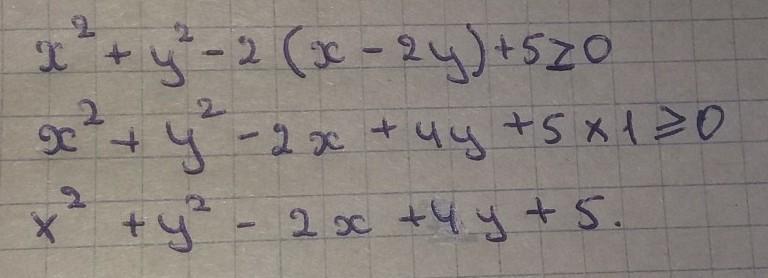 x² + y² - 2 (x - 2y) + 5 ≥ 0
x² + y² - 2x + 4y + 5 × 1 ≥ 0
x² + y² - 2x + 4y + 5.